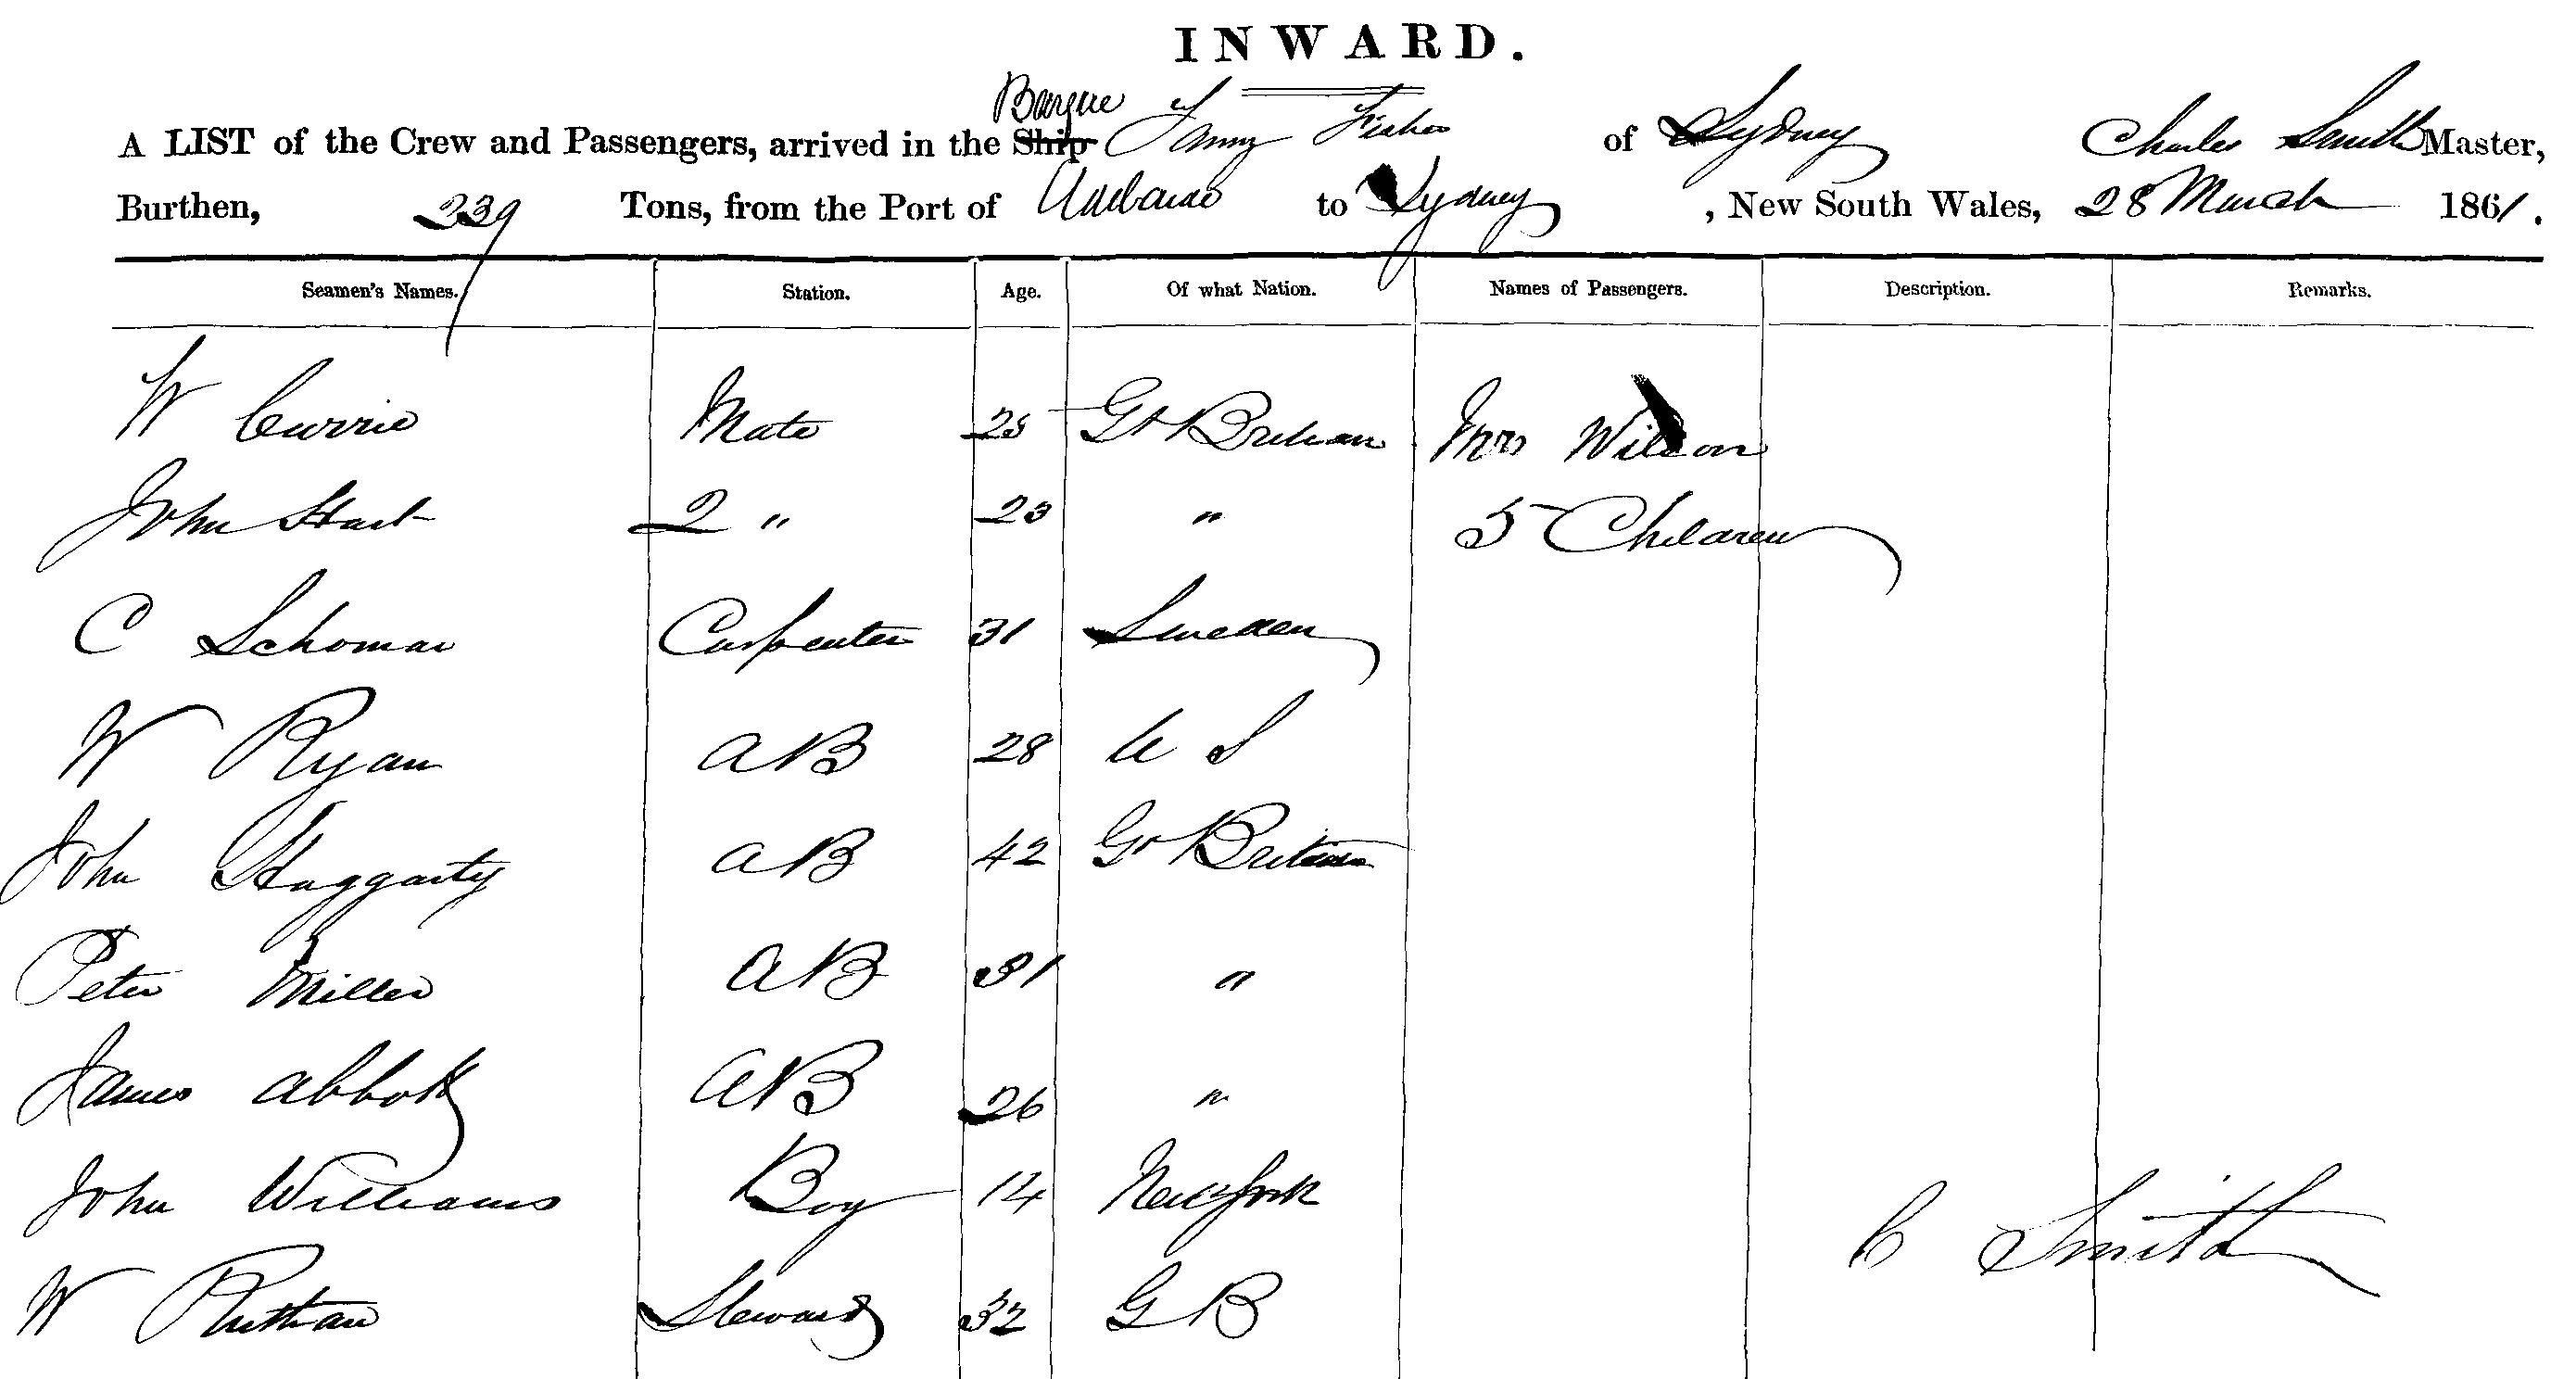 INWARD.
Barque
A LIST of the Crew and Passengers, arrived in the Ship Fanny Fisher of Sydney Charles Smith Master,
Burthen, 239 Tons, from the Port of Adelaide to Sydney, New South Wales, 28 March 1861.
Seamen's Names. Station. Age. Of what Nation. Names of Passengers. Description. Remarks.
W Currie Mate 25 Gt Britain Mrs Wilson
John Hart 2 " 23 " 5 Children
C Schoman Carpenter 31 Sweden
W Ryan AB 28 U S
John Haggarty AB 42 Gt Britain
Peter Miller AB 31 "
James Abbott AB 26 "
John Williams Boy 14 New York
C Smith
W Steward 32 G B